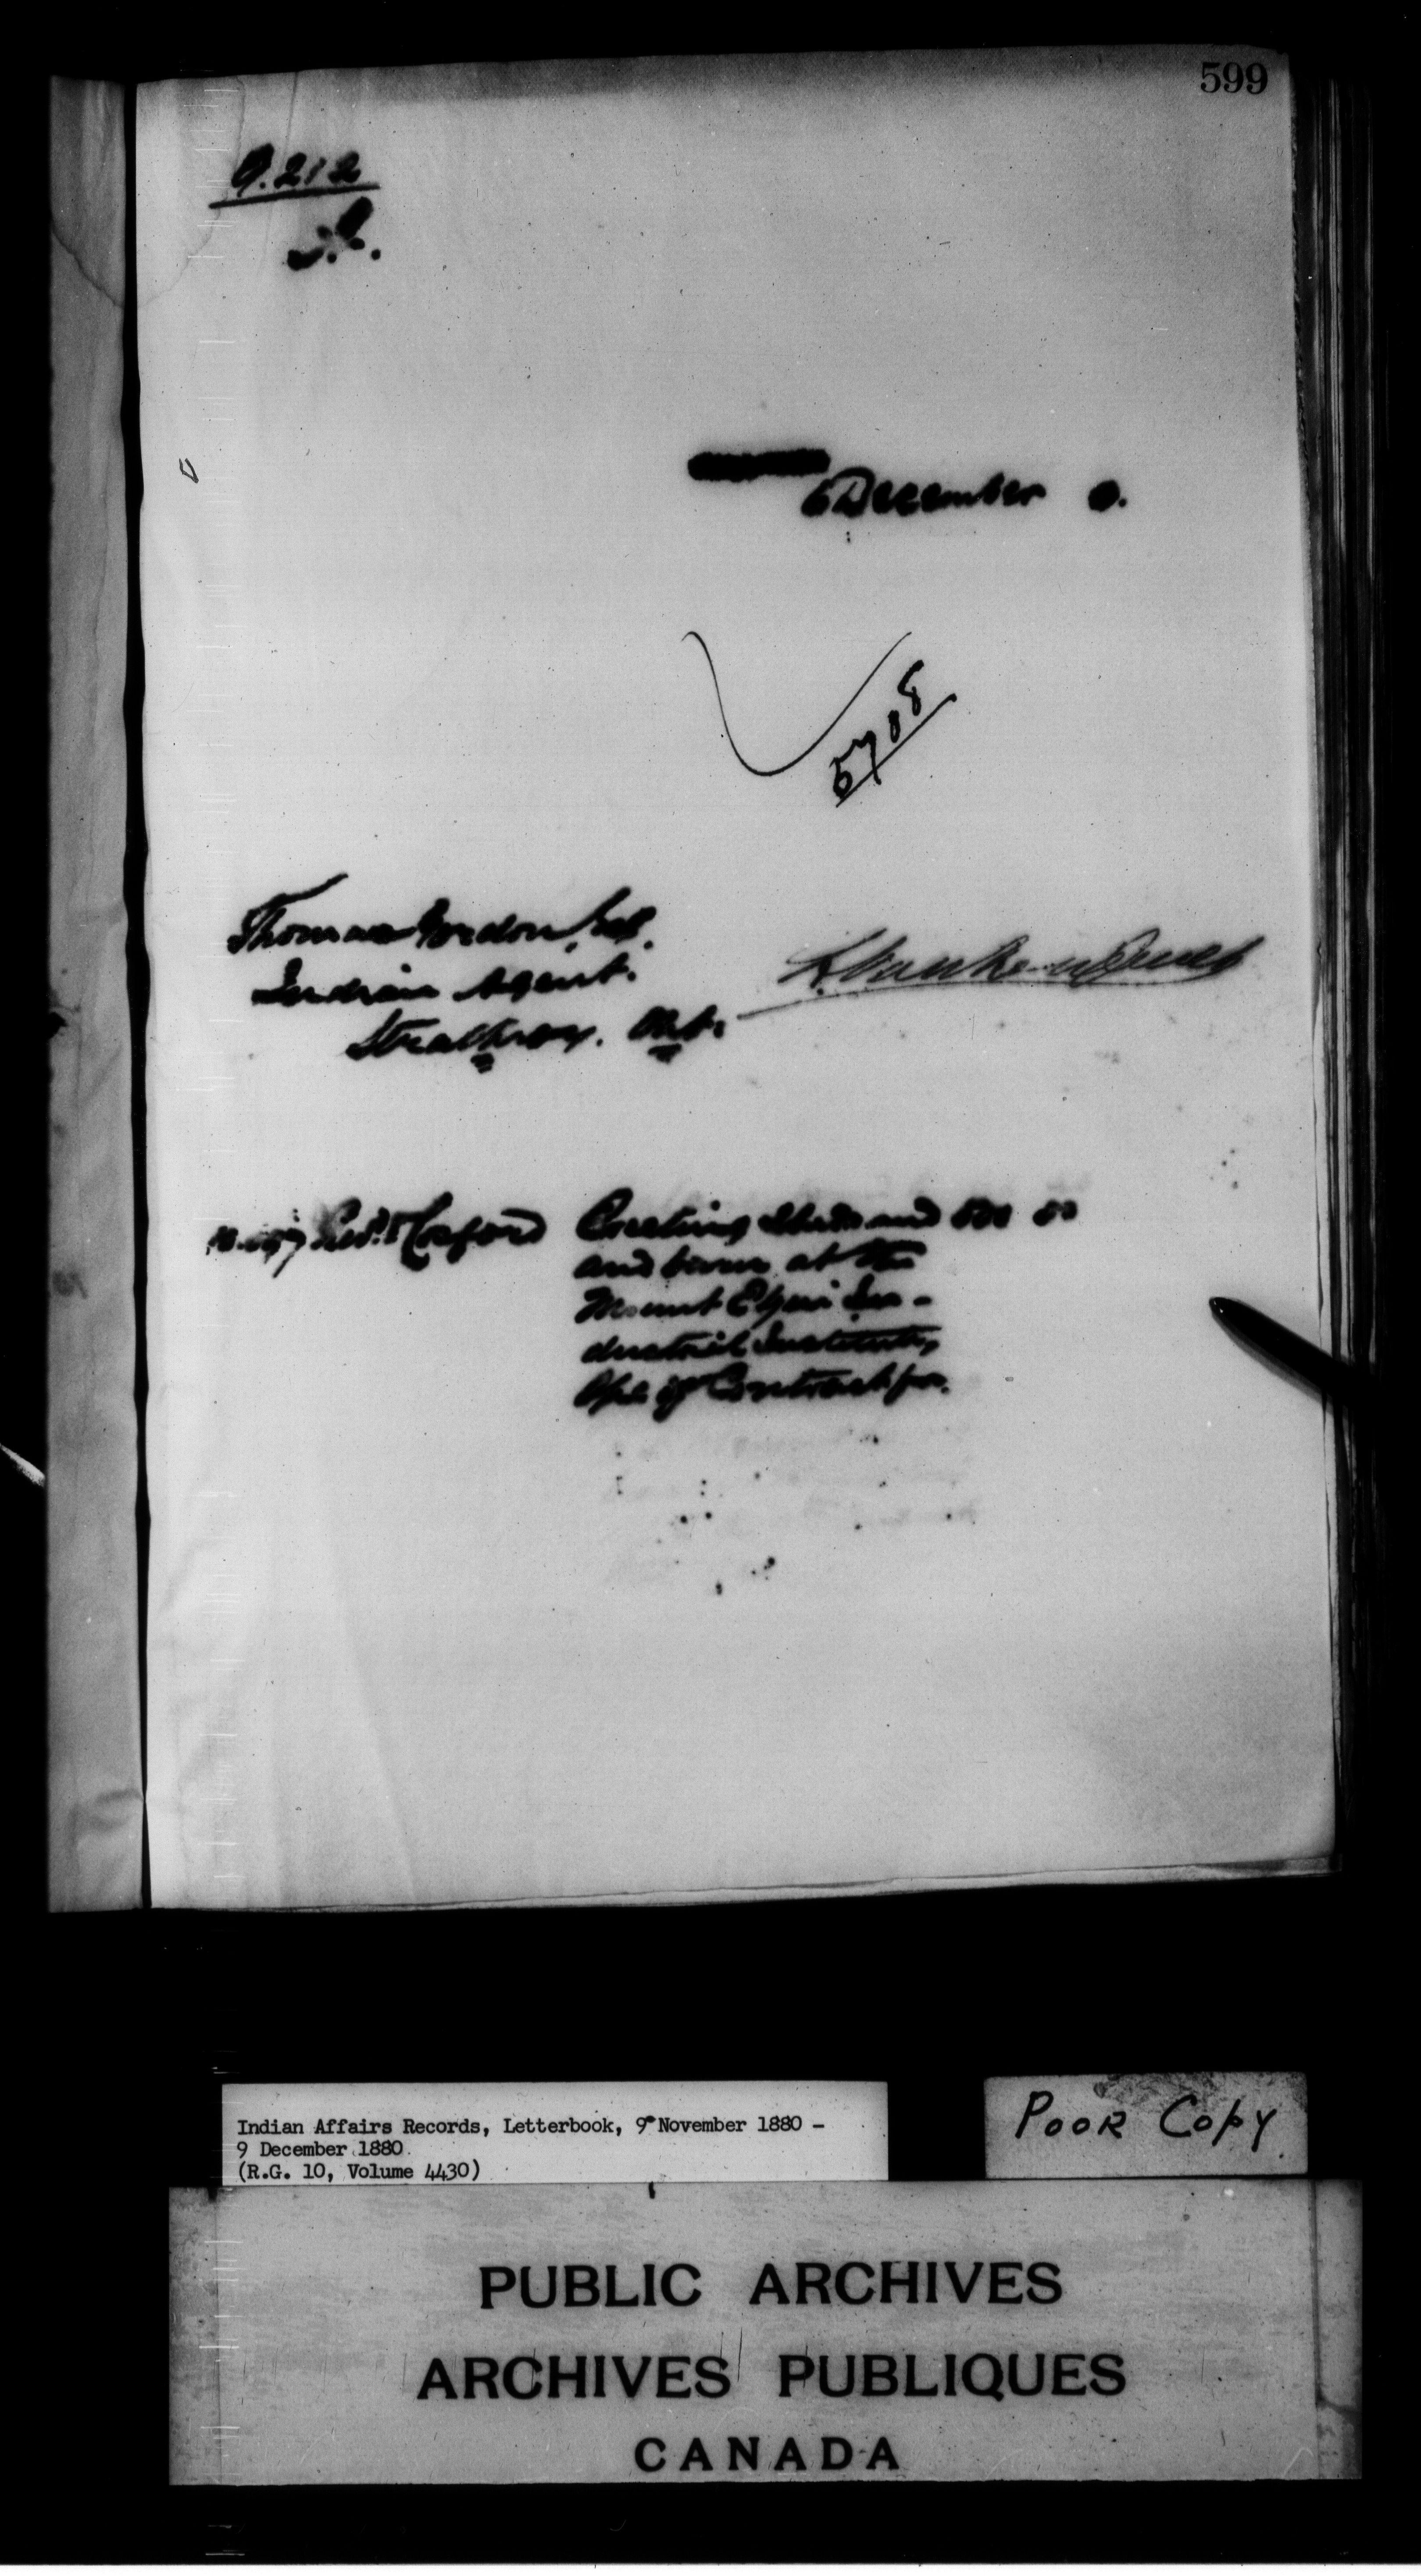 599
9.212
6 December 0.
5708
Thomas Gordon, Esq.
Indian Agent.
Strathroy. Ont.
L. Vankoughnet
Revd. Cosford Erecting Sheds and
and barn at the
Mount Elgin In-
dustrial Institute,
of Contract for.
Indian Affairs Records, Letterbook, 9 November 1880 -
9 December 1880.
(R.G. 10, Volume 4430)
POOR COPY
PUBLIC ARCHIVES
ARCHIVES PUBLIQUES
CANADA